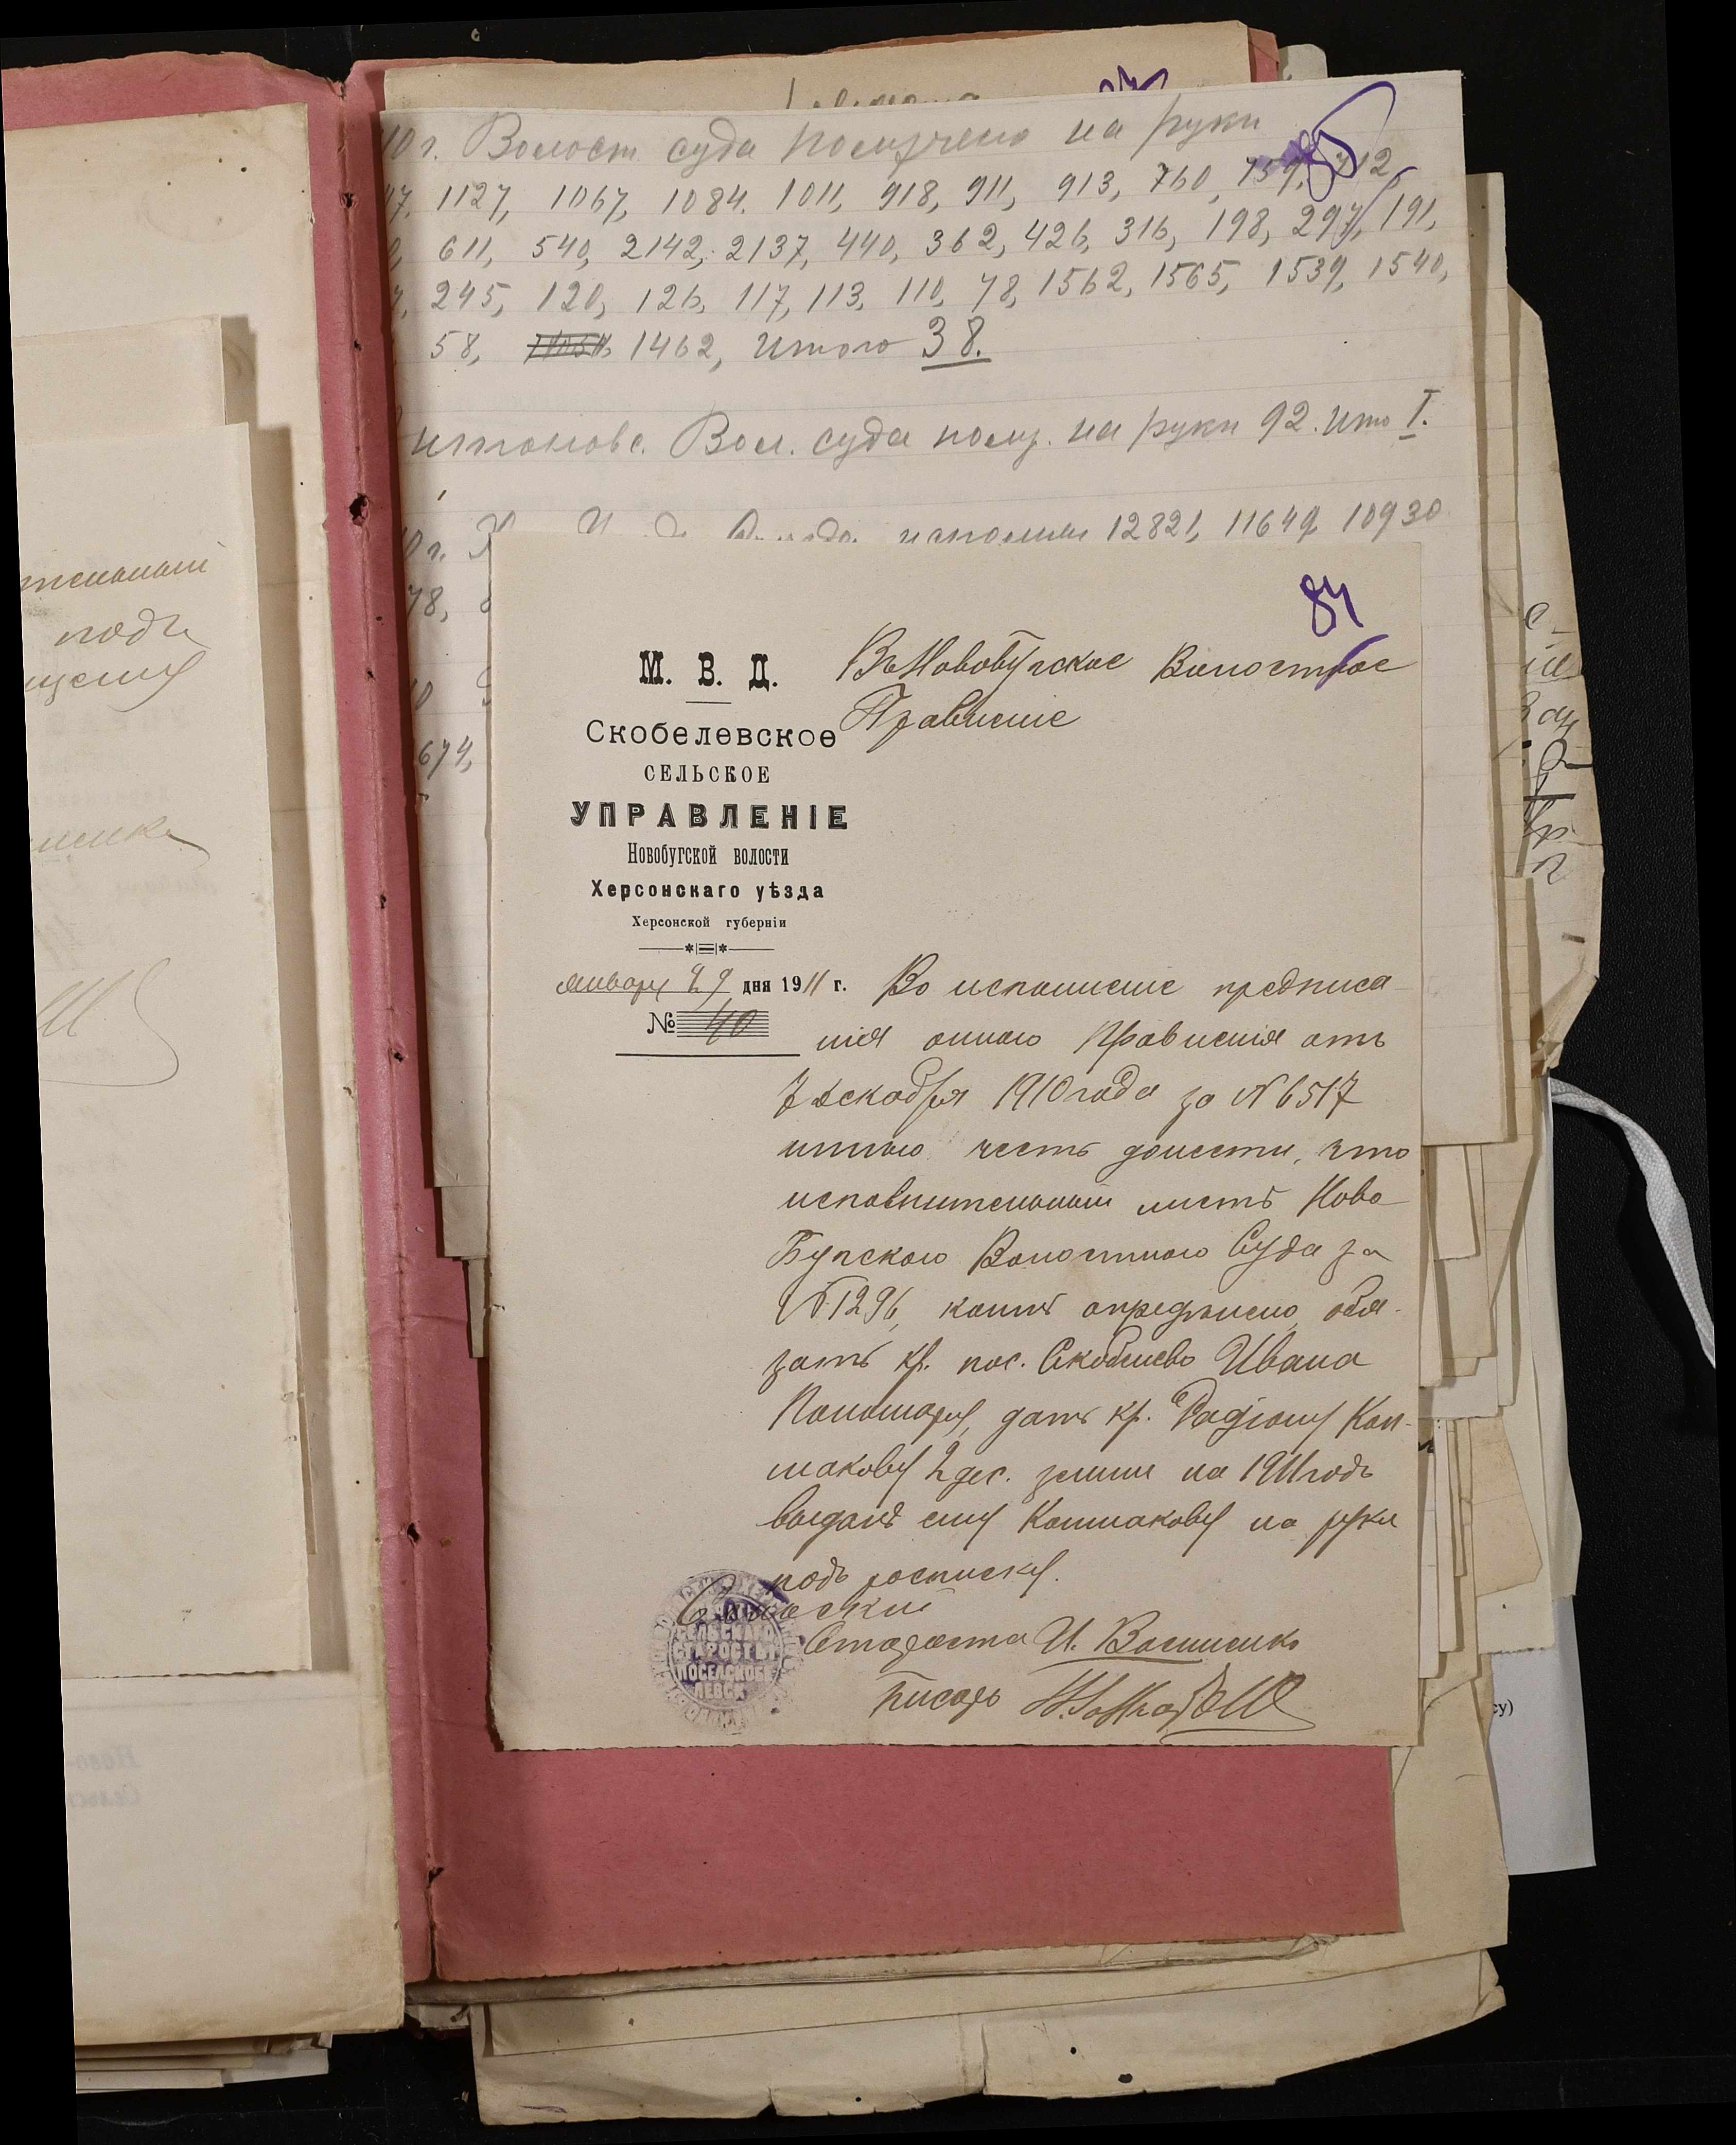 10 г. Волост суда получено на руки
85
1127, 1067, 1084. 1011, 918, 911, 913, 760, 759, 712,
611, 540, 2142, 2137, 440, 362, 426, 316, 198, 297, 191,
245, 120, 126, 117, 113, 110, 78, 1562, 1565, 1539, 1540,
58, 1462, Итого 38.
Вол. суда получ. на руки 92. Ито I.
12821, 11649, 10930
78,
674,
84
М. В. Д.
Скобелевское
СЕЛЬСКОЕ
УПРАВЛЕНІЕ
Новобугской волости
Херсонскаго уѣзда
Херсонской губерніи
Января 29 дня 1911 г.
№ 40
Въ Новобугское Волостное
Правление
Во исполнение предписа
ния оного Правления отъ
7 декабря 1910 года за N 6517
имею честь донести, что
исполнительный листъ Ново
Бугского Волостного Суда за
N. 1296, коимъ определено обя-
зать кр. пос. Скобелево Ивана
Пономаря, дать кр. Радіону Кол-
макову 2 дес. земли на 1911 годъ
выданъ ему Колмакову на руки
подъ росписку.
Сельский
Староста И. Василенко
Писарь
СЕЛЬСКАГО
СТАРОСТЫ
тельный
подъ